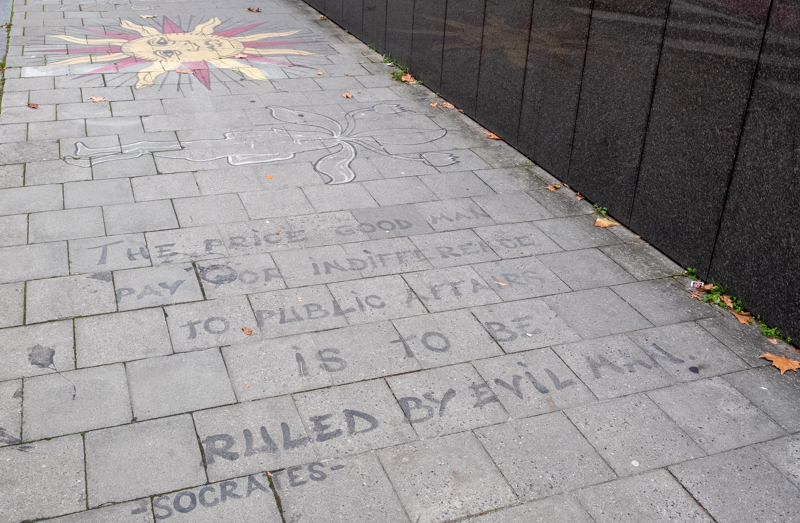 THE PRICE GOOD MAN
PAY FOR INDIFFERENCE
TO PUBLIC AFFAIRS
iS TO BE
RULED BY EViL MAN.
-SOCRATES-